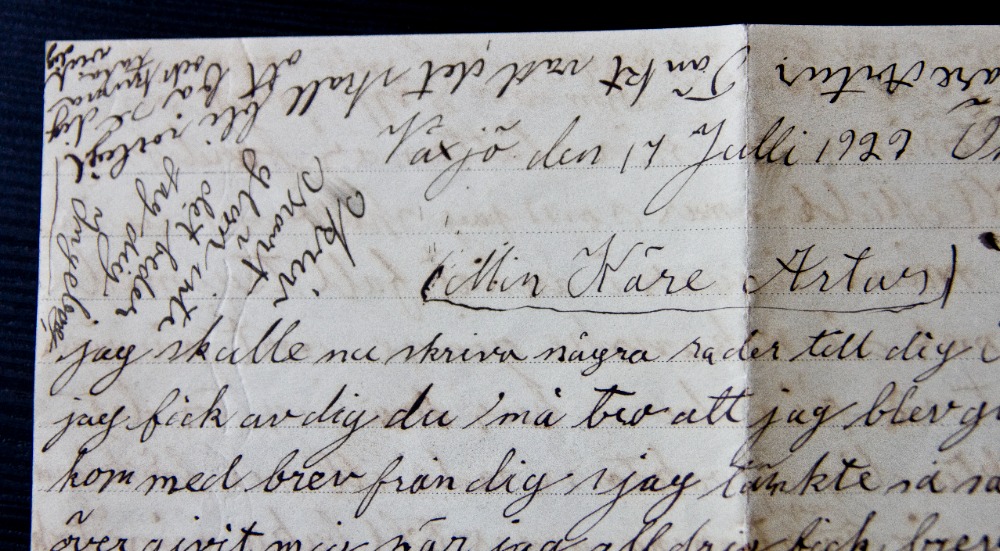 Växjö den 17 Julli 1927
(Min Käre Artur)
jag skulle nu skriva några rader till dig
jag fick av dig du må tro att jag blev
kom med brev från dig jag tänkte så
över givit mig när jag alldrig fick brev
Käre Artur
Tänkt vad det skall
bli roligt att få
och tala
Skriv
snart
glöm inte
det beder
jag dig
Ingeborg